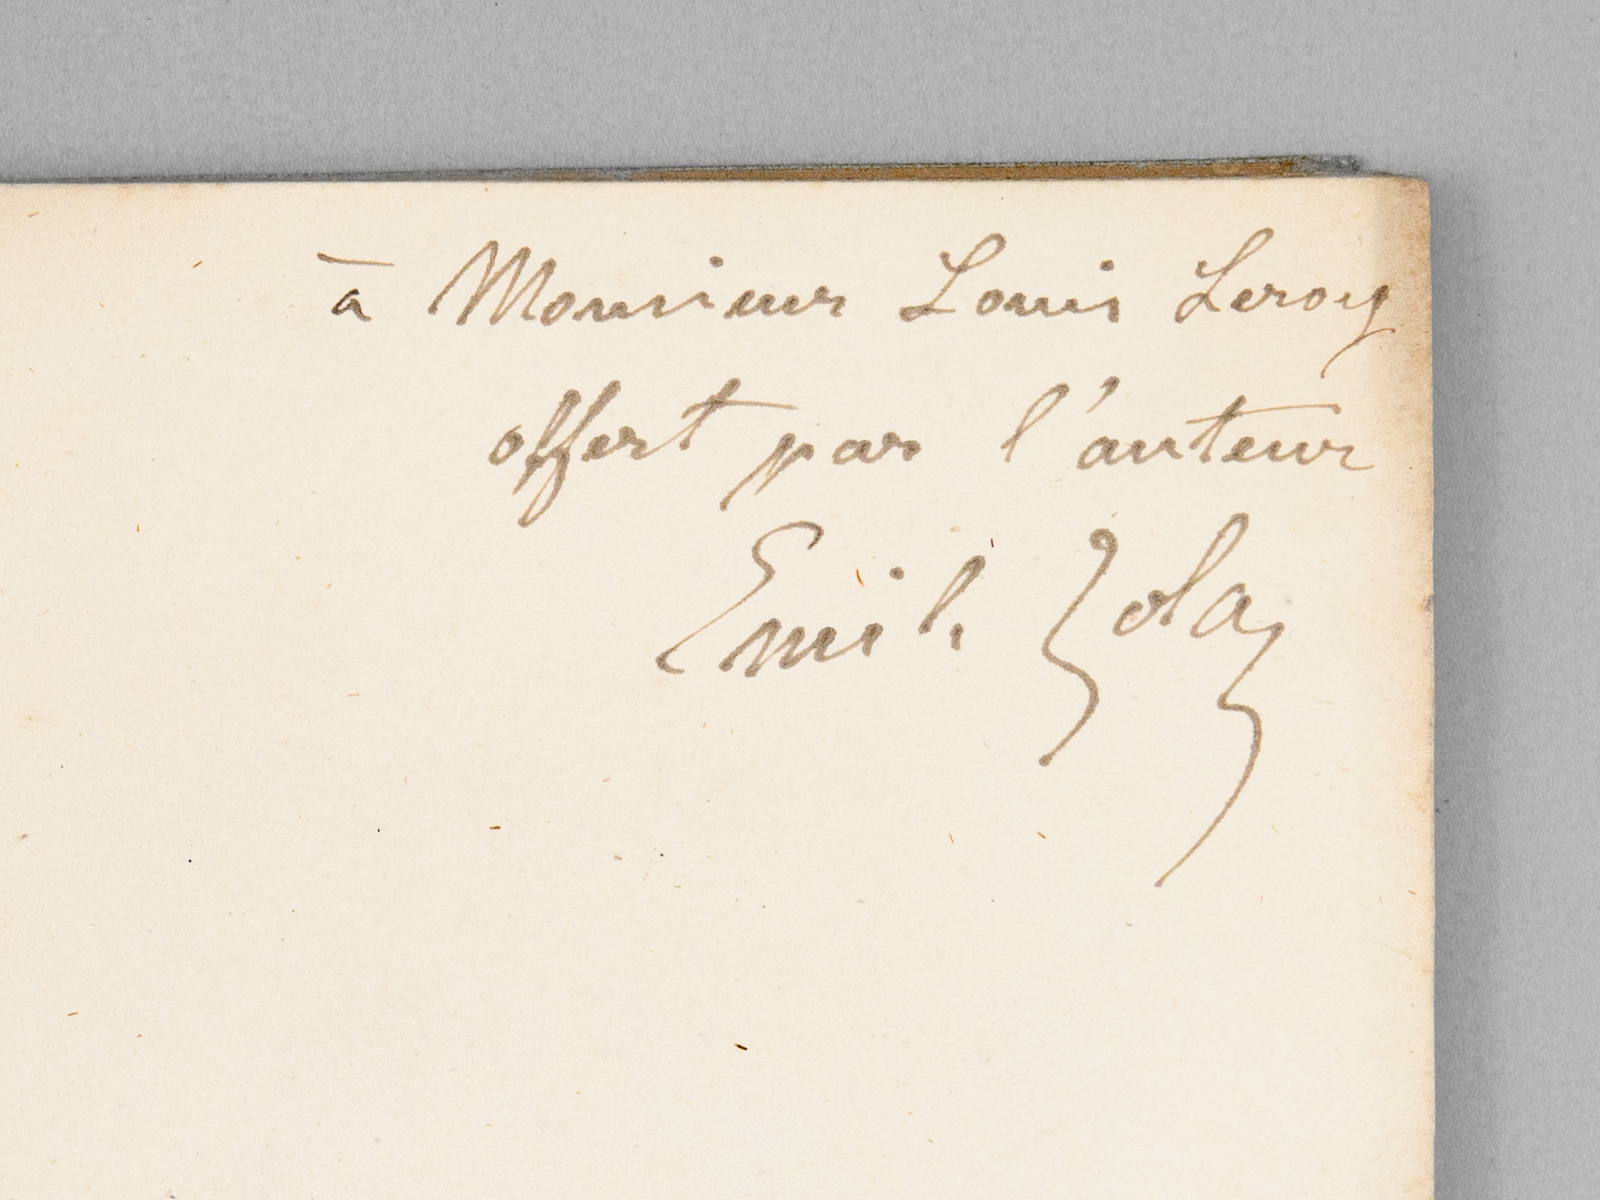 à Monsieur Louis Leroy
offert par l'auteur
Emile Zola